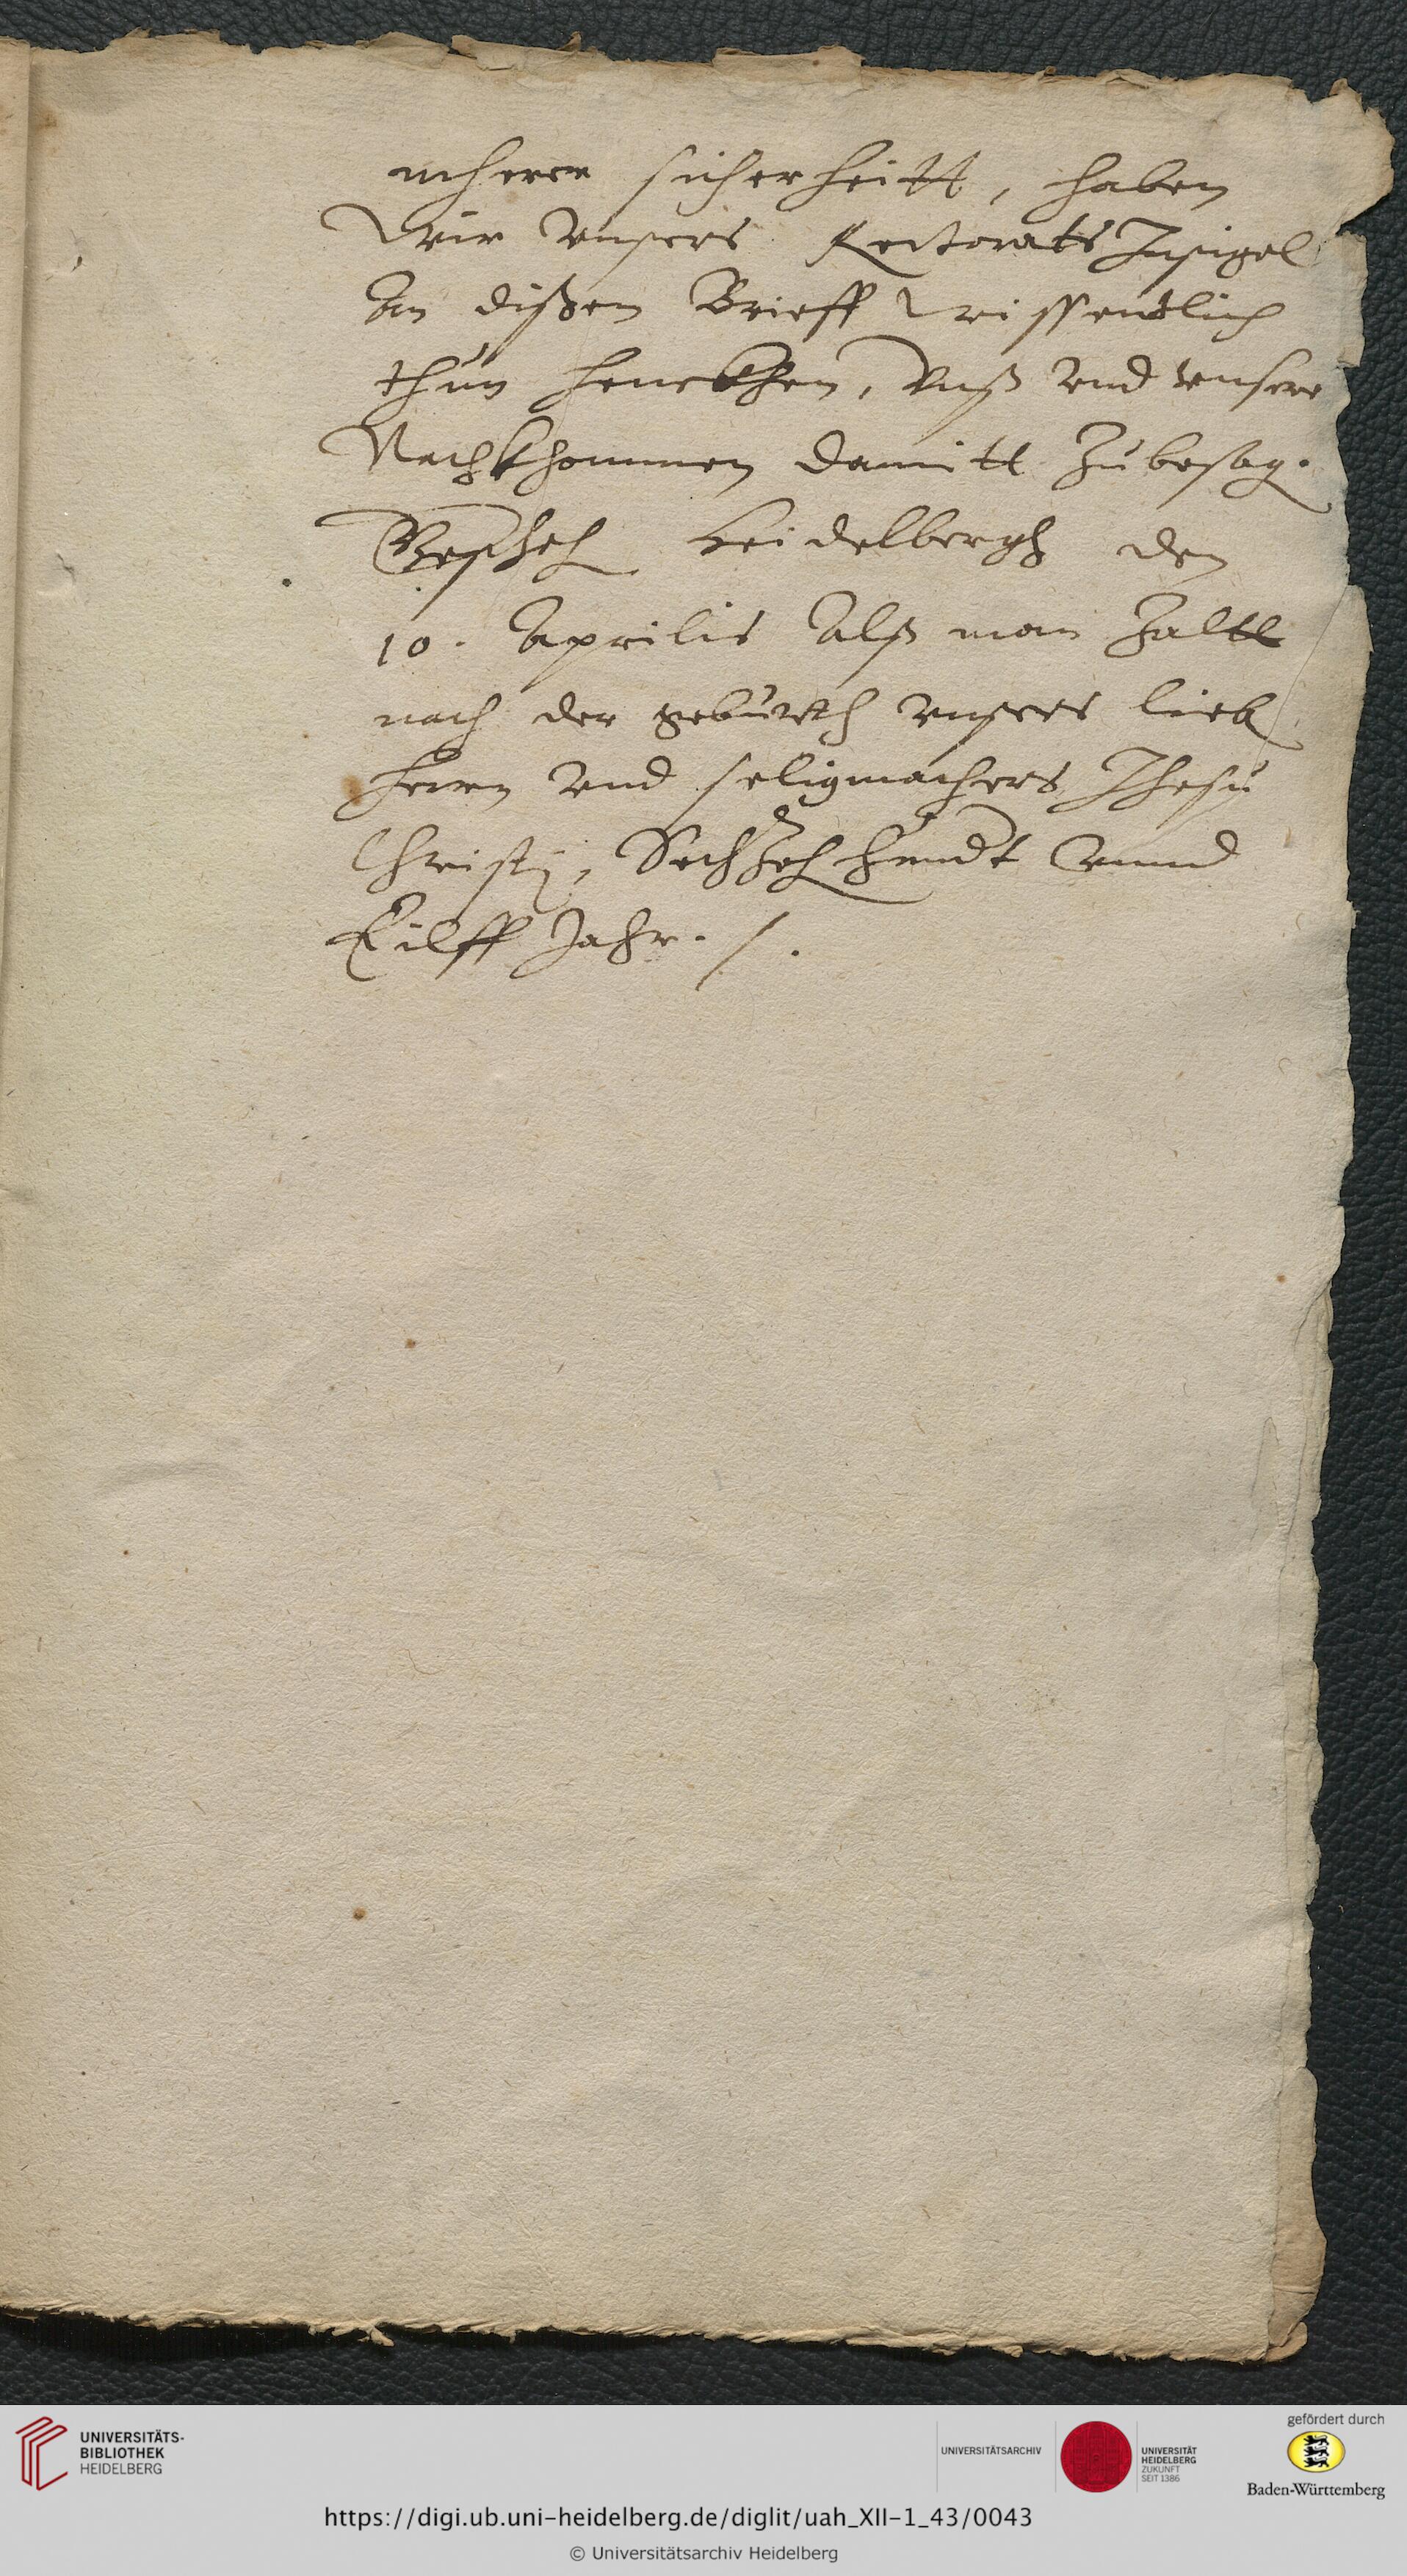 mehrerer sicherheitt, haben
Wir vnsers Rectorats Insigel
An dißen Brieff Wissentlich
thun henckhen, Vnß vnd vnsere
Nachkhommen damitt zubesag.
Gescheh Heidelbergh den
10. Aprilis Alß man Zaltt
nach der geburth vnsers lieb
herrn vnd seligmachers Jhesu
Christj, Sechzeh hundt vnnd
Eilff Jahr. /.
UNIVERSITÄTS-
BIBLIOTHEK
HEIDELBERG
UNIVERSITÄTSARCHIV
UNIVERSITÄT
HEIDELBERG
ZUKUNFT
SEIT 1386
gefördert durch
Baden-Württemberg
https://digi.ub.uni-heidelberg.de/diglit/uah_XII-1_43/0043
© Universitätsarchiv Heidelberg